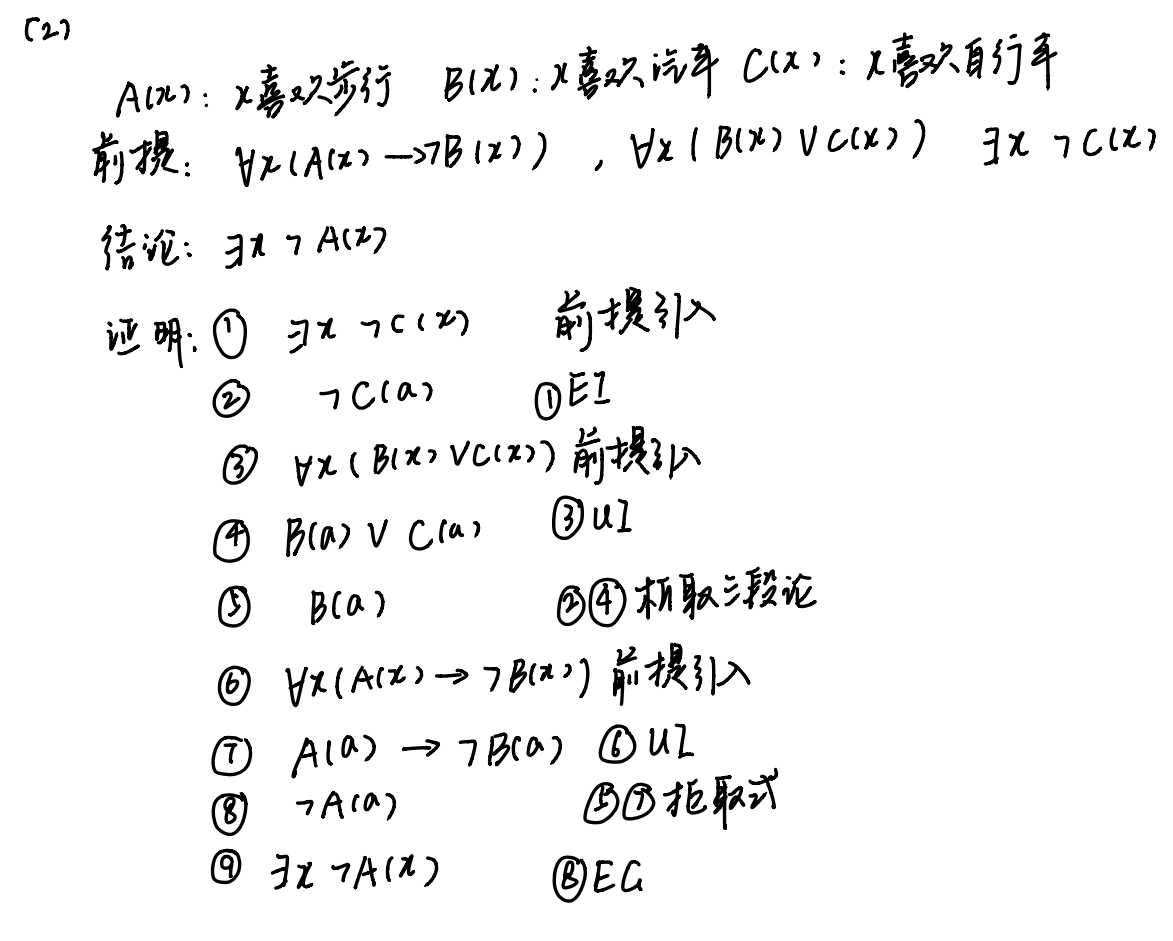 (2)
A(x): x喜欢步行 B(x): x喜欢汽车 C(x): x喜欢自行车
前提: ∀x(A(x)→¬B(x)) , ∀x(B(x)∨C(x)) ∃x¬C(x)
结论: ∃x¬A(x)
证明: ① ∃x¬C(x) 前提引入
② ¬C(a) ①EI
③ ∀x(B(x)∨C(x)) 前提引入
④ B(a)∨C(a) ③UI
⑤ B(a) ②④析取三段论
⑥ ∀x(A(x)→¬B(x)) 前提引入
⑦ A(a)→¬B(a) ⑥UI
⑧ ¬A(a) ⑤⑦拒取式
⑨ ∃x¬A(x) ⑧EG